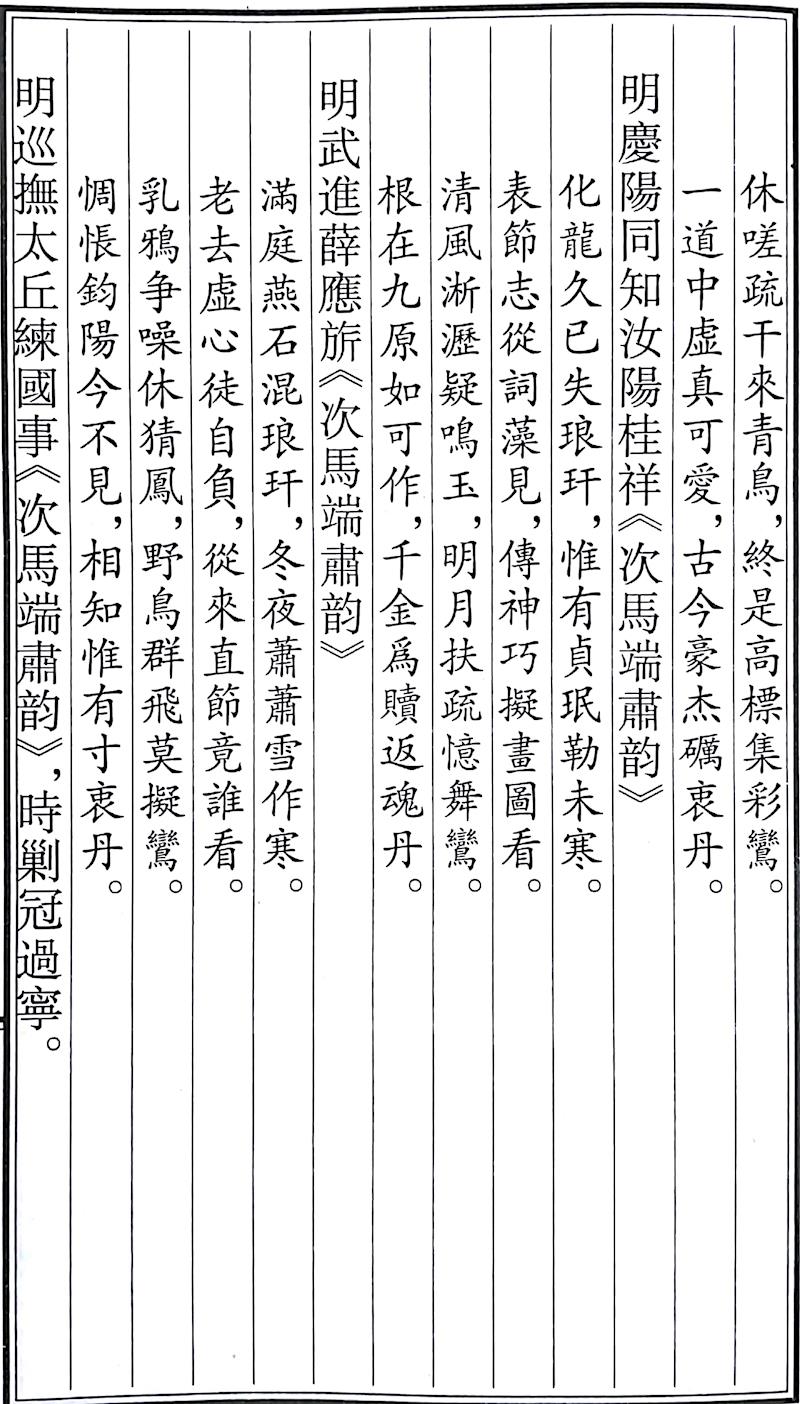 休嗟疏干來青鳥，終是高標集彩鸞。
一道中虛真可愛，古今豪杰礪衷丹。
明慶陽同知汝陽桂祥《次馬端肅韵》
化龍久已失琅玕，惟有貞珉勒未寒。
表節志從詞藻見，傳神巧擬畫圖看。
清風淅瀝疑鳴玉，明月扶疏憶舞鸞。
根在九原如可作，千金爲贖返魂丹。
明武進薛應旂《次馬端肅韵》
滿庭燕石混琅玕，冬夜蕭蕭雪作寒。
老去虛心徒自負，從來直節竟誰看。
乳鴉争噪休猜鳳，野鳥群飛莫擬鸞。
惆悵鈞陽今不見，相知惟有寸衷丹。
明巡撫太丘練國事《次馬端肅韵》，時剿冠過寧。